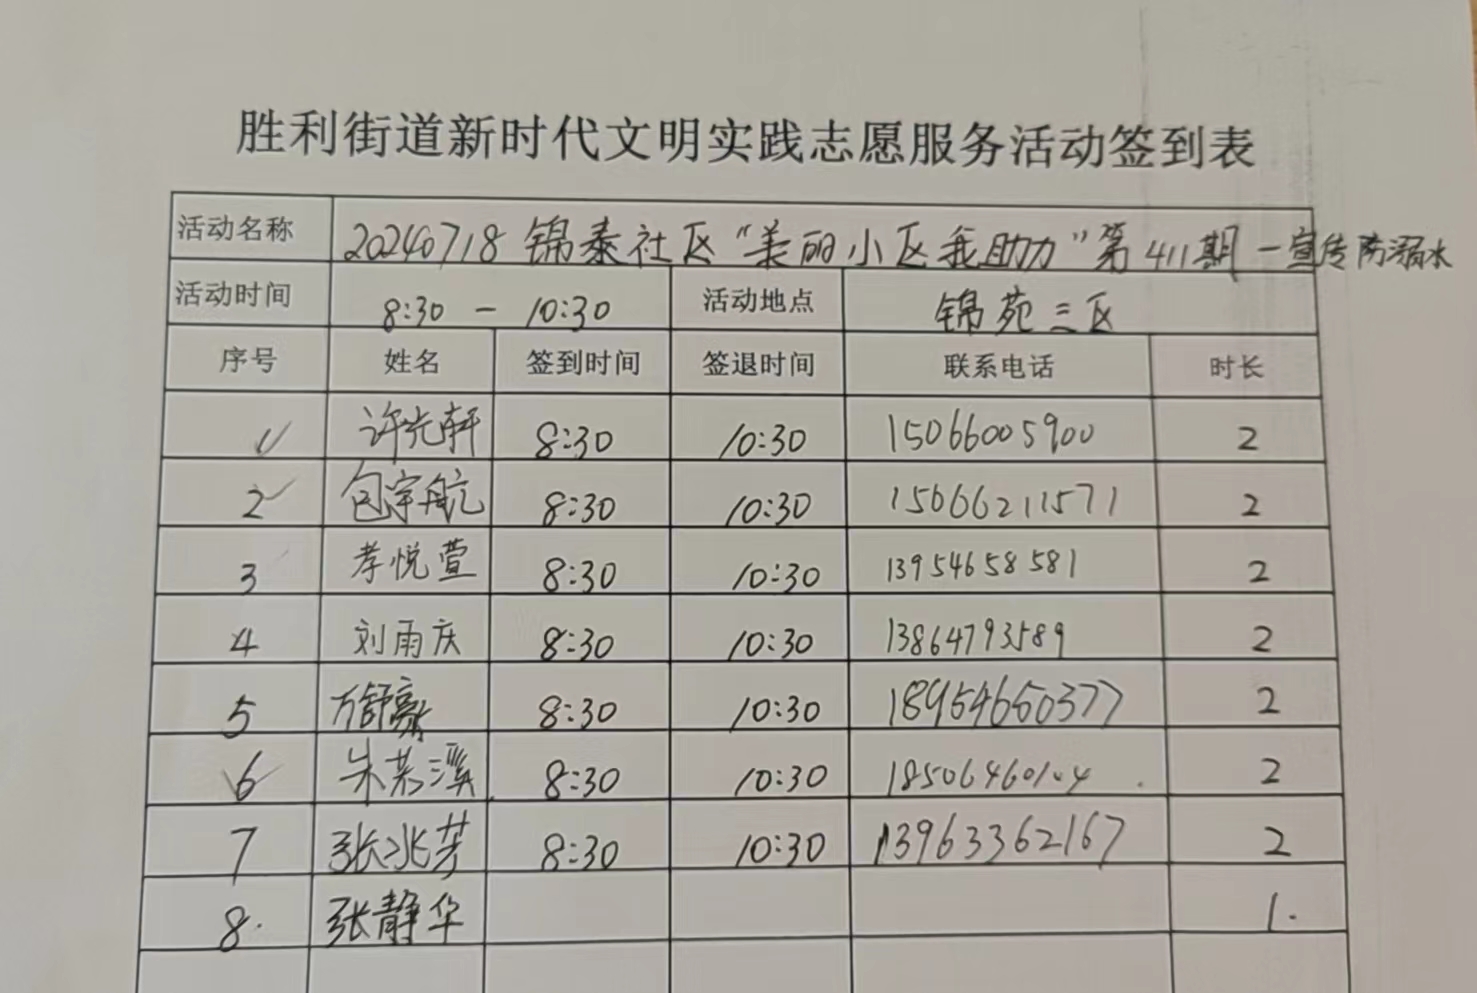 胜利街道新时代文明实践志愿服务活动签到表
活动名称 20240718 锦泰社区“美丽小区我助力”第411期-宣传防溺水
活动时间 8:30 - 10:30 活动地点 锦苑三区
序号 姓名 签到时间 签退时间 联系电话 时长
1 许光轩 8:30 10:30 15066005900 2
2 包宇航 8:30 10:30 15066211571 2
3 李悦萱 8:30 10:30 13954658581 2
4 刘雨庆 8:30 10:30 13864793589 2
5 万舒 8:30 10:30 18954650377 2
6 朱若溪 8:30 10:30 18506460104 2
7 张兆芳 8:30 10:30 13963362167 2
8. 张静华 1.